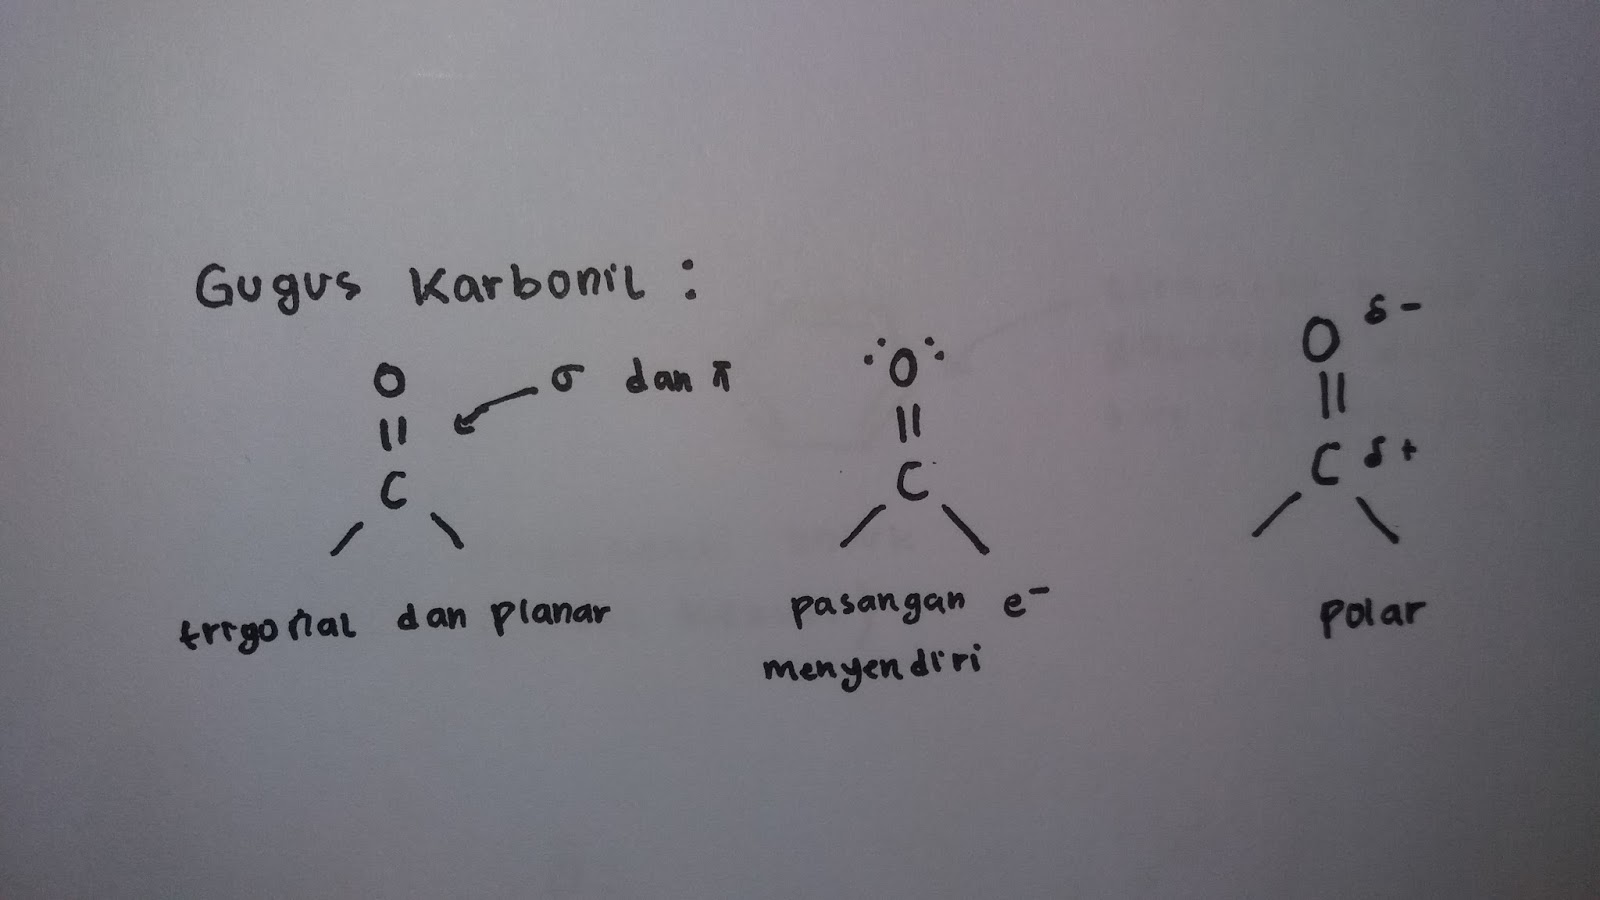 Gugus Karbonil :
O
||
C
σ dan π
trigonal dan planar
:O:
||
C
pasangan e⁻
menyendiri
O δ-
||
C δ+
polar